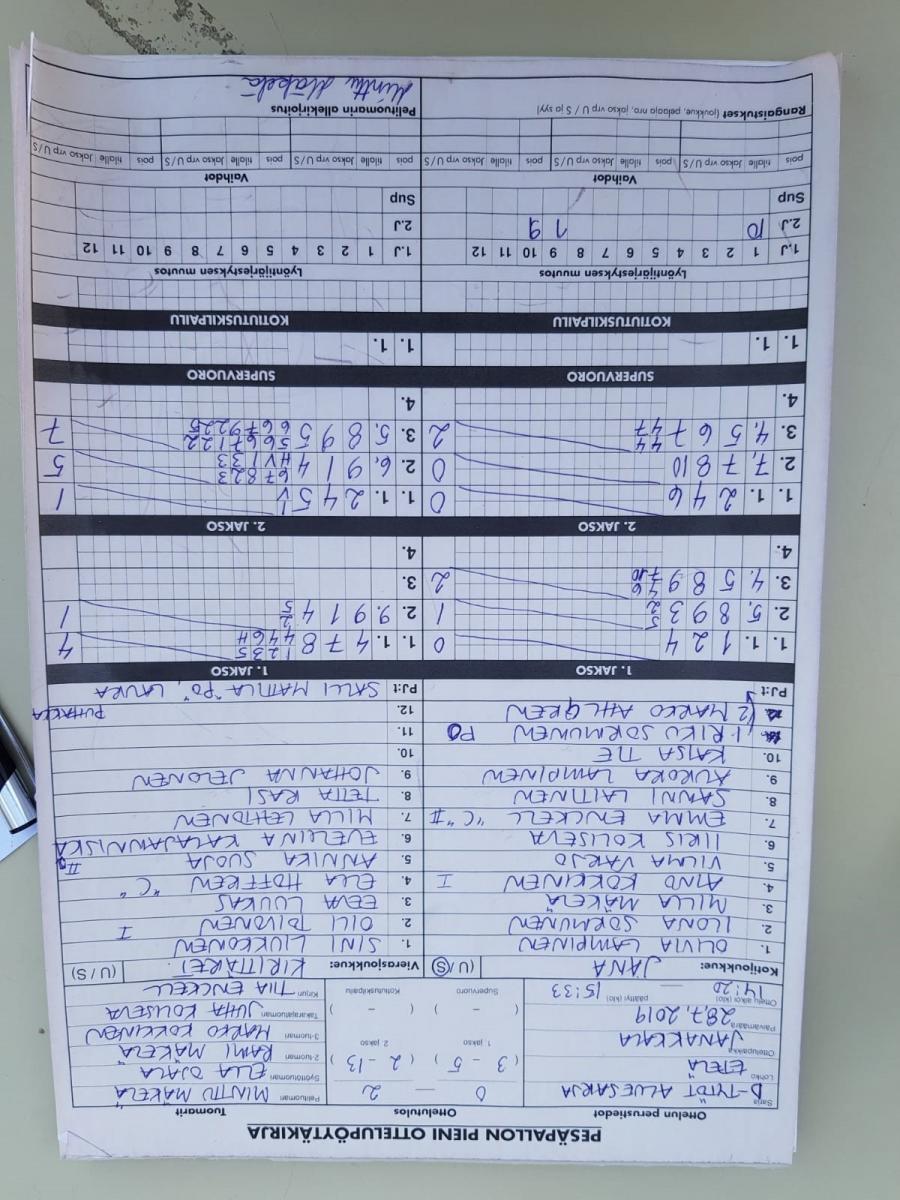 PESÄPALLON PIENI OTTELUPÖYTÄKIRJA
Ottelun perustiedot
Ottelutulos
Tuomarit
Sarja D-TYTÖT ALUESARJA
0 — 2
Pelituomari MINTTU MÄKELÄ
Lohko ETELÄ
Syöttötuomari ELLA OJALA
Ottelupaikka JANAKKALA
1. jakso ( 3 - 5 )
2. jakso ( 2 - 13 )
2-tuomari RAMI MÄKELÄ
Päivämäärä 28.7.2019
3-tuomari MARKO KOKKINEN
Ottelu alkoi (klo) 14:20 — päättyi (klo) 15:33
Supervuoro ( - )
Kotiutuskilpailu ( - )
Takarajatuomari JUHA KOLISEVA
Kirjuri TIIA ENCKELL
Kotijoukkue: JANA (U / S)
Vierasjoukkue: KIRITTÄRET (U / S)
1. OLIVIA LAMPINEN
1. SINI LIUKKONEN
2. ILONA SORMUNEN
2. OILI TOIVONEN I
3. MILLA MÄKELÄ
3. EEVA LUUKAS
4. AINO KOKKINEN I
4. ELLA HOFFREN "C"
5. VILMA VARJO
5. ANNIKA SUOJA II
6. IIRIS KOLISEVA
6. EVELIINA KALAJANNISKA
7. EMMA ENCKELL "C" II
7. MILLA LEHTONEN
8. SANNI LAITINEN
8. TETTA KASI
9. AURORA LAMPINEN
9. JOHANNA JELONEN
10. KAISA TIE
10.
RIKU SORMUNEN PO
11.
MARKO AHLGREN
12.
PJ:t
PJ:t SALLI MATTILA "PO", LAURA
PUHAKKA
1. JAKSO
1. JAKSO
1. 1. 1 2 4 0
1. 1. 4 7 8 1235 446H 4
2. 5. 8 9 3 2 5 1
2. 9. 9 1 4 2 5 1
3. 4. 5 8 9 46 710 2
3.
4.
4.
2. JAKSO
2. JAKSO
1. 1. 2 4 6 0
1. 1. 2 4 5 1 V 1
2. 7, 7 8 10 0
2. 6, 9 1 4 67823 HV133 5
3. 4, 5 6 7 44 47 2
3. 5, 8 9 5 7
4.
4.
SUPERVUORO
SUPERVUORO
1. 1.
1. 1.
KOTIUTUSKILPAILU
KOTIUTUSKILPAILU
Lyöntijärjestyksen muutos
Lyöntijärjestyksen muutos
1.J 1 2 3 4 5 6 7 8 9 10 11 12
1.J 1 2 3 4 5 6 7 8 9 10 11 12
2.J 10 1 9
2.J
Sup
Sup
Vaihdot
Vaihdot
pois tilalle Jakso vrp U/S pois tilalle Jakso vrp U/S pois tilalle Jakso vrp U/S
pois tilalle Jakso vrp U/S pois tilalle Jakso vrp U/S pois tilalle Jakso vrp U/S
Rangaistukset (joukkue, pelaaja nro, jakso vrp U / S ja syy)
Pelituomarin allekirjoitus
Minttu Mäkelä